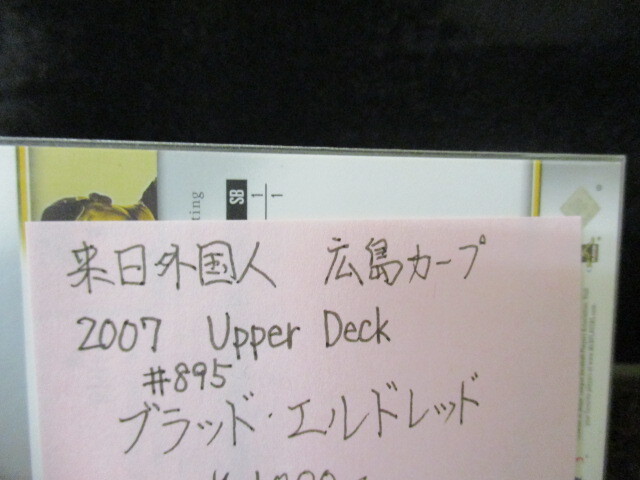 ting
SB
1
1
来日外国人 広島カープ
2007 Upper Deck
#895
ブラッド・エルドレッド